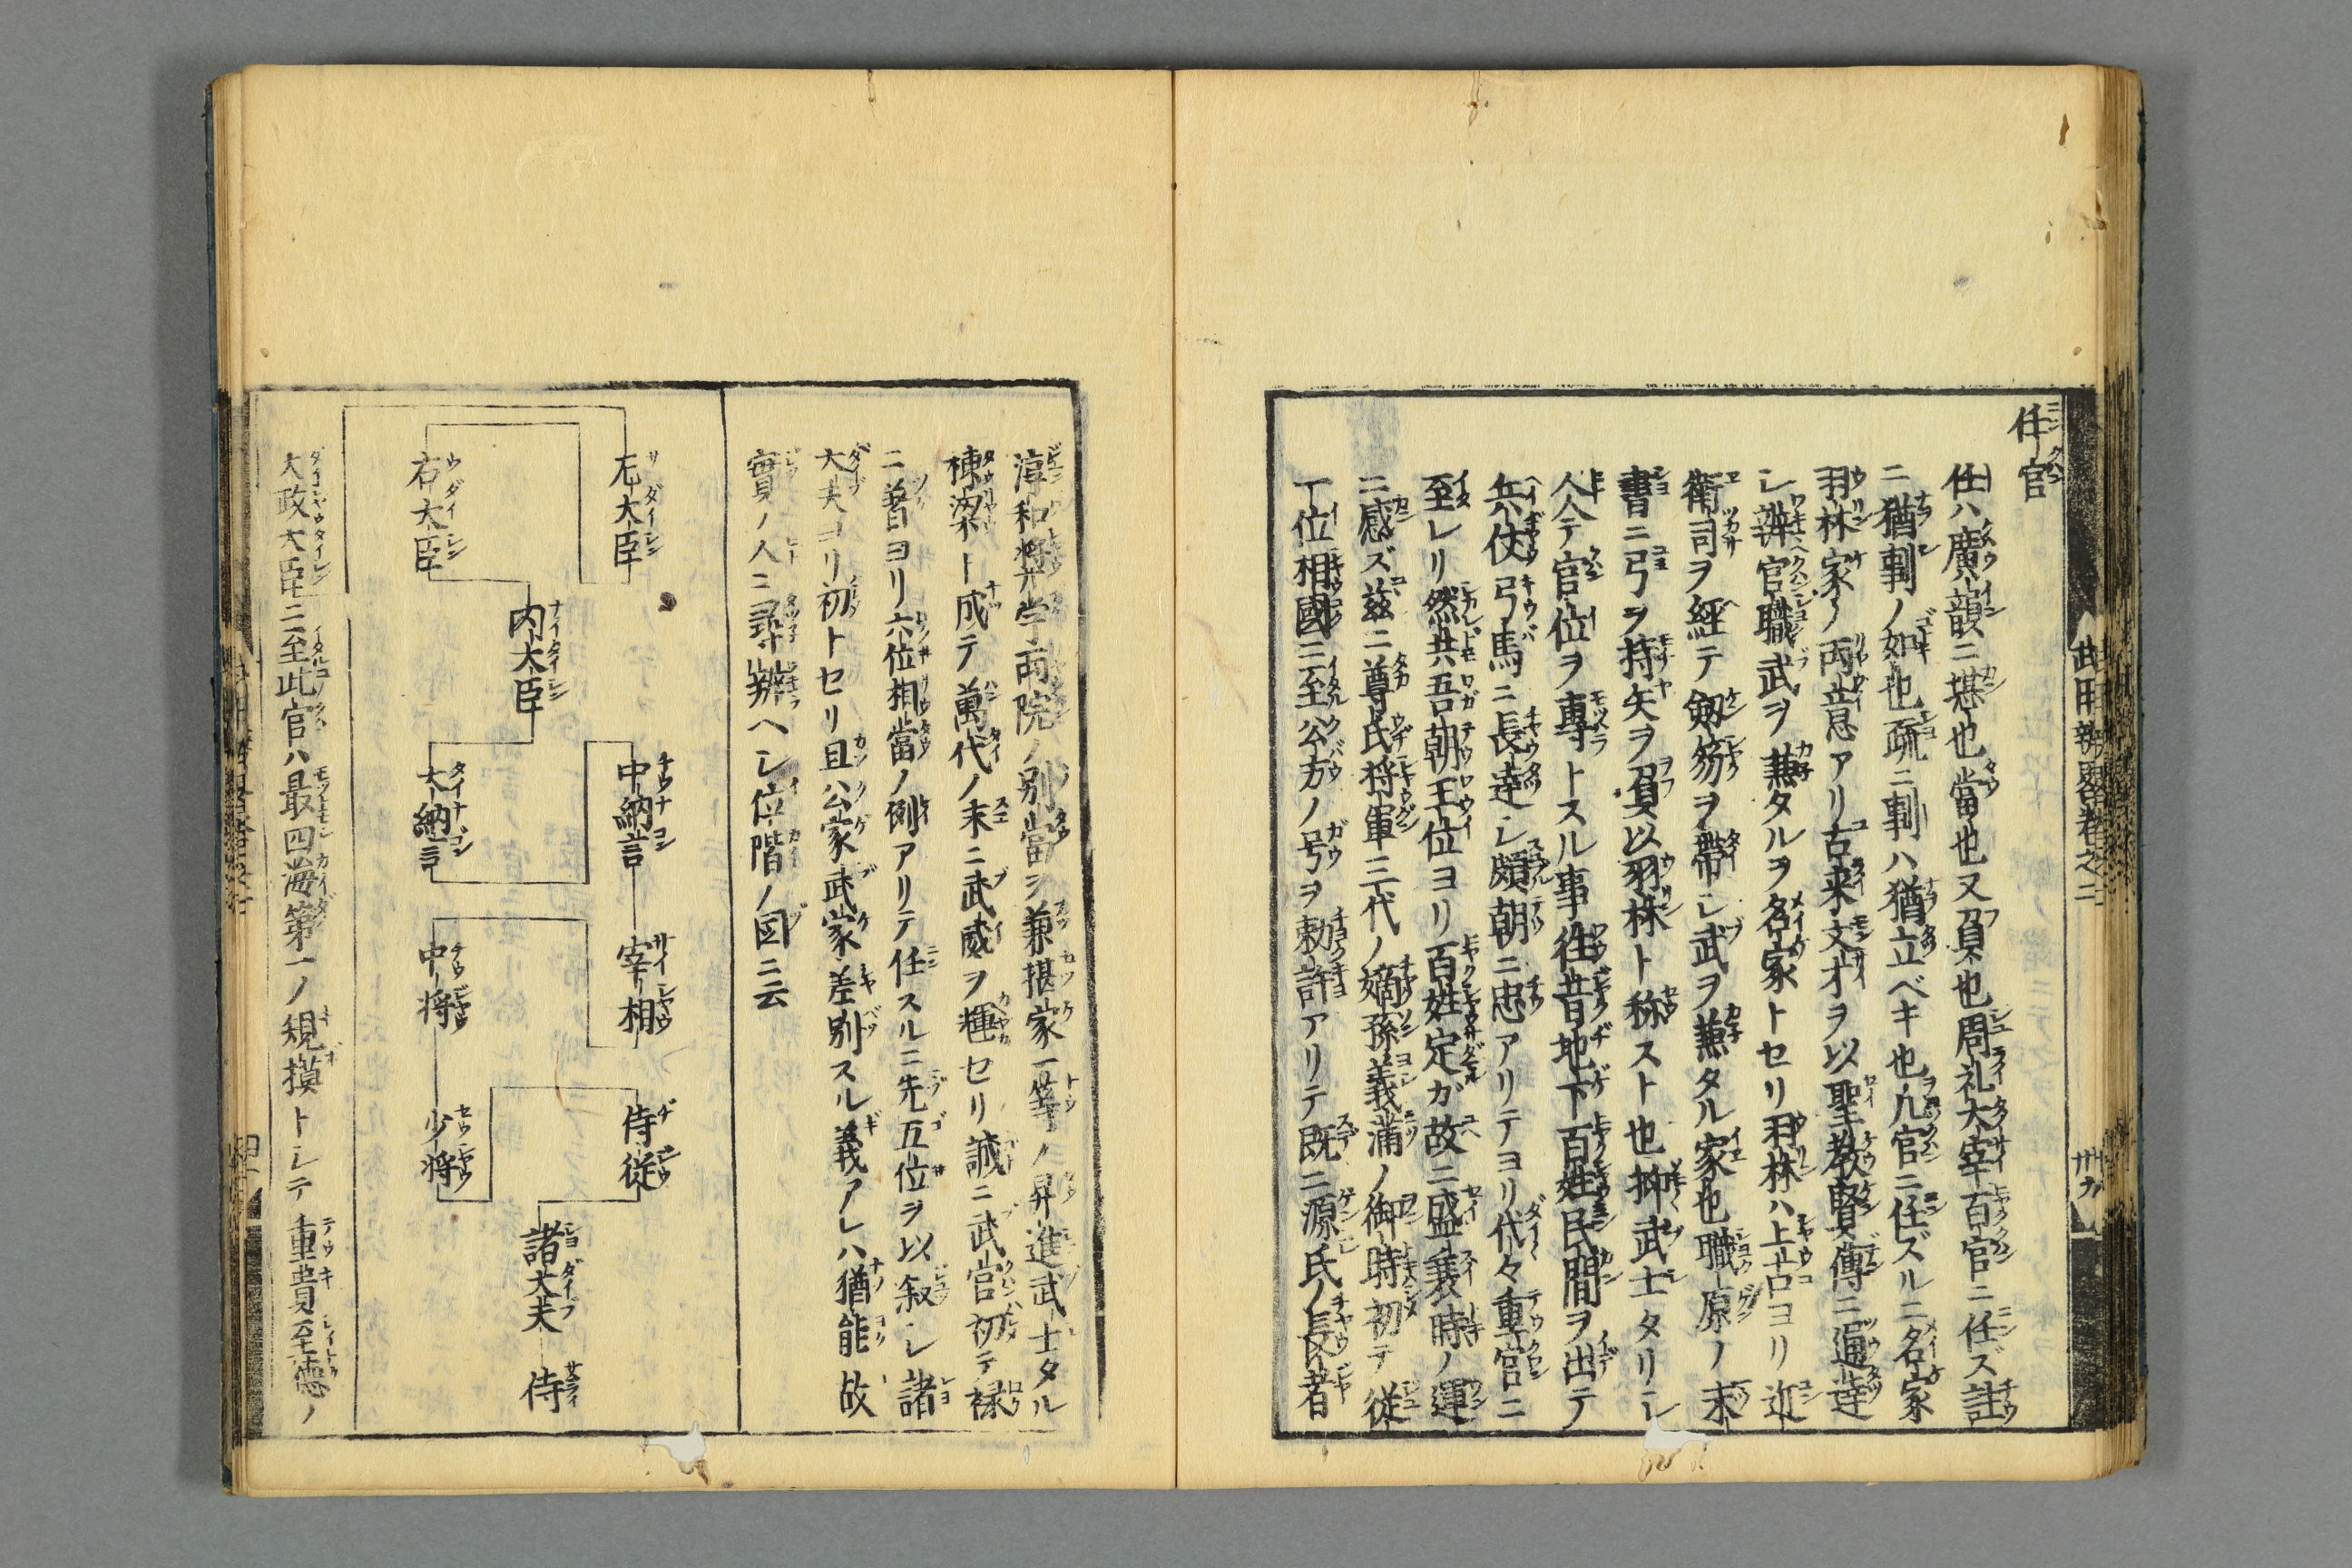 任官
任ハ廣韻ニ堪也當也又負也周礼大宰百官ニ任ズ註
ニ猶剚ノ如也疏ニ剚ハ猶立ベキ也凡官ニ任ズルニ名家
羽林家ノ両意アリ古来文才ヲ以聖教賢傳ニ通達
シ辨官職武ヲ兼タルヲ名家トセリ羽林ハ上古ヨリ近
衛司ヲ経テ劔笏ヲ帯シ武ヲ兼タル家也職原ノ末
書ニ弓ヲ持矢ヲ負以羽林ト称スト也抑武士タリシ
人テ官位ヲ專トスル事往昔地下百姓民間ヲ出テ
兵仗弓馬ニ長達シ頗朝ニ忠アリテヨリ代々重官ニ
至レリ然共吾朝王位ヨリ百姓定ガ故ニ盛衰時ノ運
ニ感ズ茲ニ尊氏将軍三代ノ嫡孫義満ノ御時初テ従
一位相國ニ至公方ノ号ヲ勅許アリテ既ニ源氏ノ長者
淳和奨学両院ノ別當ヲ兼摂家一等ノ昇進武士タル
棟梁ト成テ萬代ノ末ニ武威ヲ輝セリ誠ニ武官初テ禄
ニ著ヨリ六位相當ノ例アリテ任スルニ先五位ヲ以叙シ諸
大夫ヨリ初トセリ且ハ公家武家差別スル義アレハ猶能故
實ノ人ニ尋辨ヘシ位階ノ図ニ云
左大臣
右大臣
内大臣
中納言
大納言
宰相
中将
侍従
少将
諸大夫
侍
大政大臣ニ至此官ハ最四海第一ノ規摸トシテ重貴至徳ノ